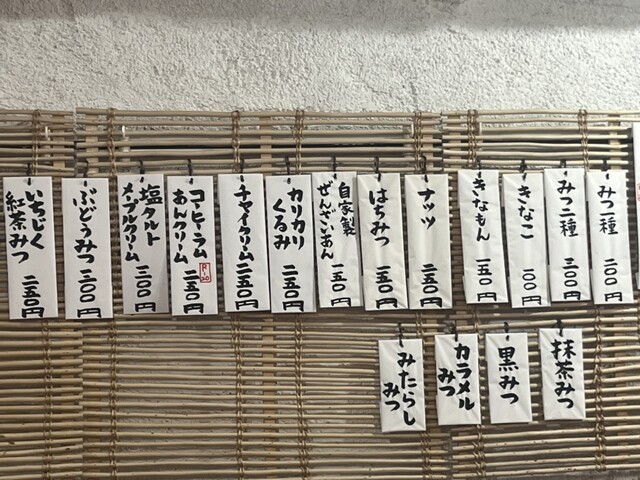 みつ一種
二〇〇円
みつ二種
三〇〇円
きなこ
一〇〇円
きなもん
一五〇円
ナッツ
二五〇円
はちみつ
二五〇円
自家製
ぜんざいあん
一五〇円
カリカリ
くるみ
二五〇円
チャイクリーム
二五〇円
コーヒーラム
あんクリーム
二五〇円
塩タルト
メープルクリーム
三〇〇円
ぶどうみつ
三〇〇円
いちじく
紅茶みつ
二五〇円
抹茶みつ
黒みつ
カラメル
みつ
みたらし
みつ